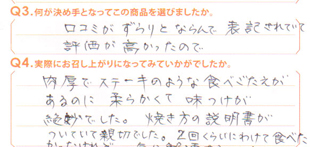 Q3.何が決め手となってこの商品を選びましたか。
口コミがずらりとならんで 表記されていて
評価が高かったので
Q4.実際にお召し上がりになってみていかがでしたか。
肉厚でステーキのような食べごたえが
あるのに 柔らかくて 味つけが
絶妙でした。焼き方の説明書が
ついていて親切でした。2回くらいにわけて食べた